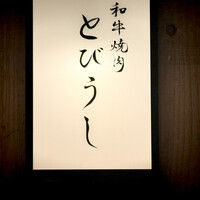 和牛焼肉
とびうし